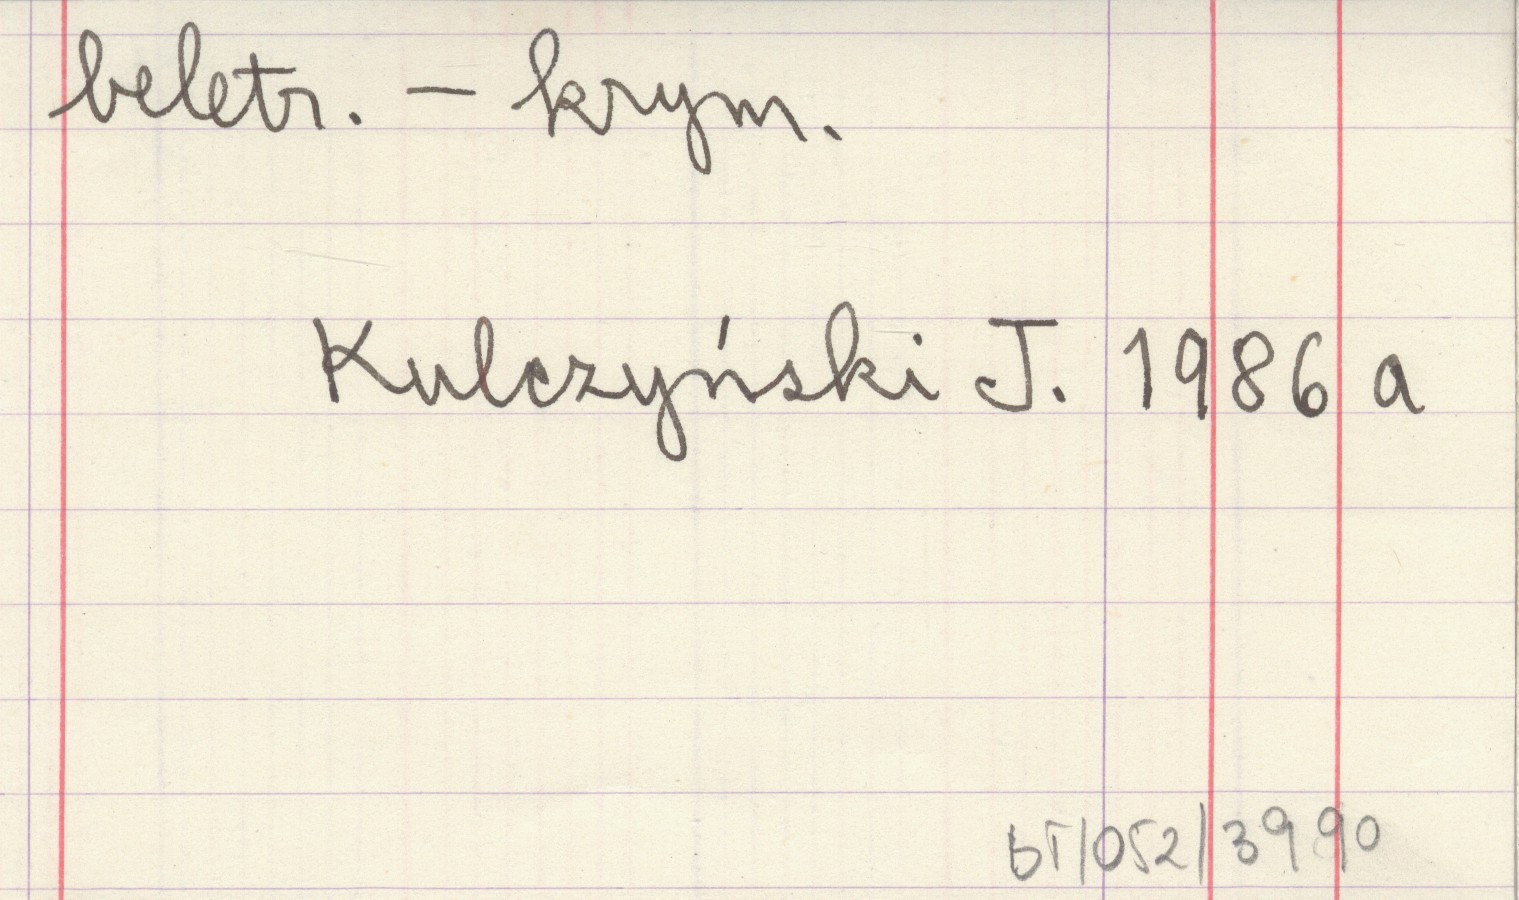 beletr. – krym.
Kulczyński J. 1986 a
bT/052/3990